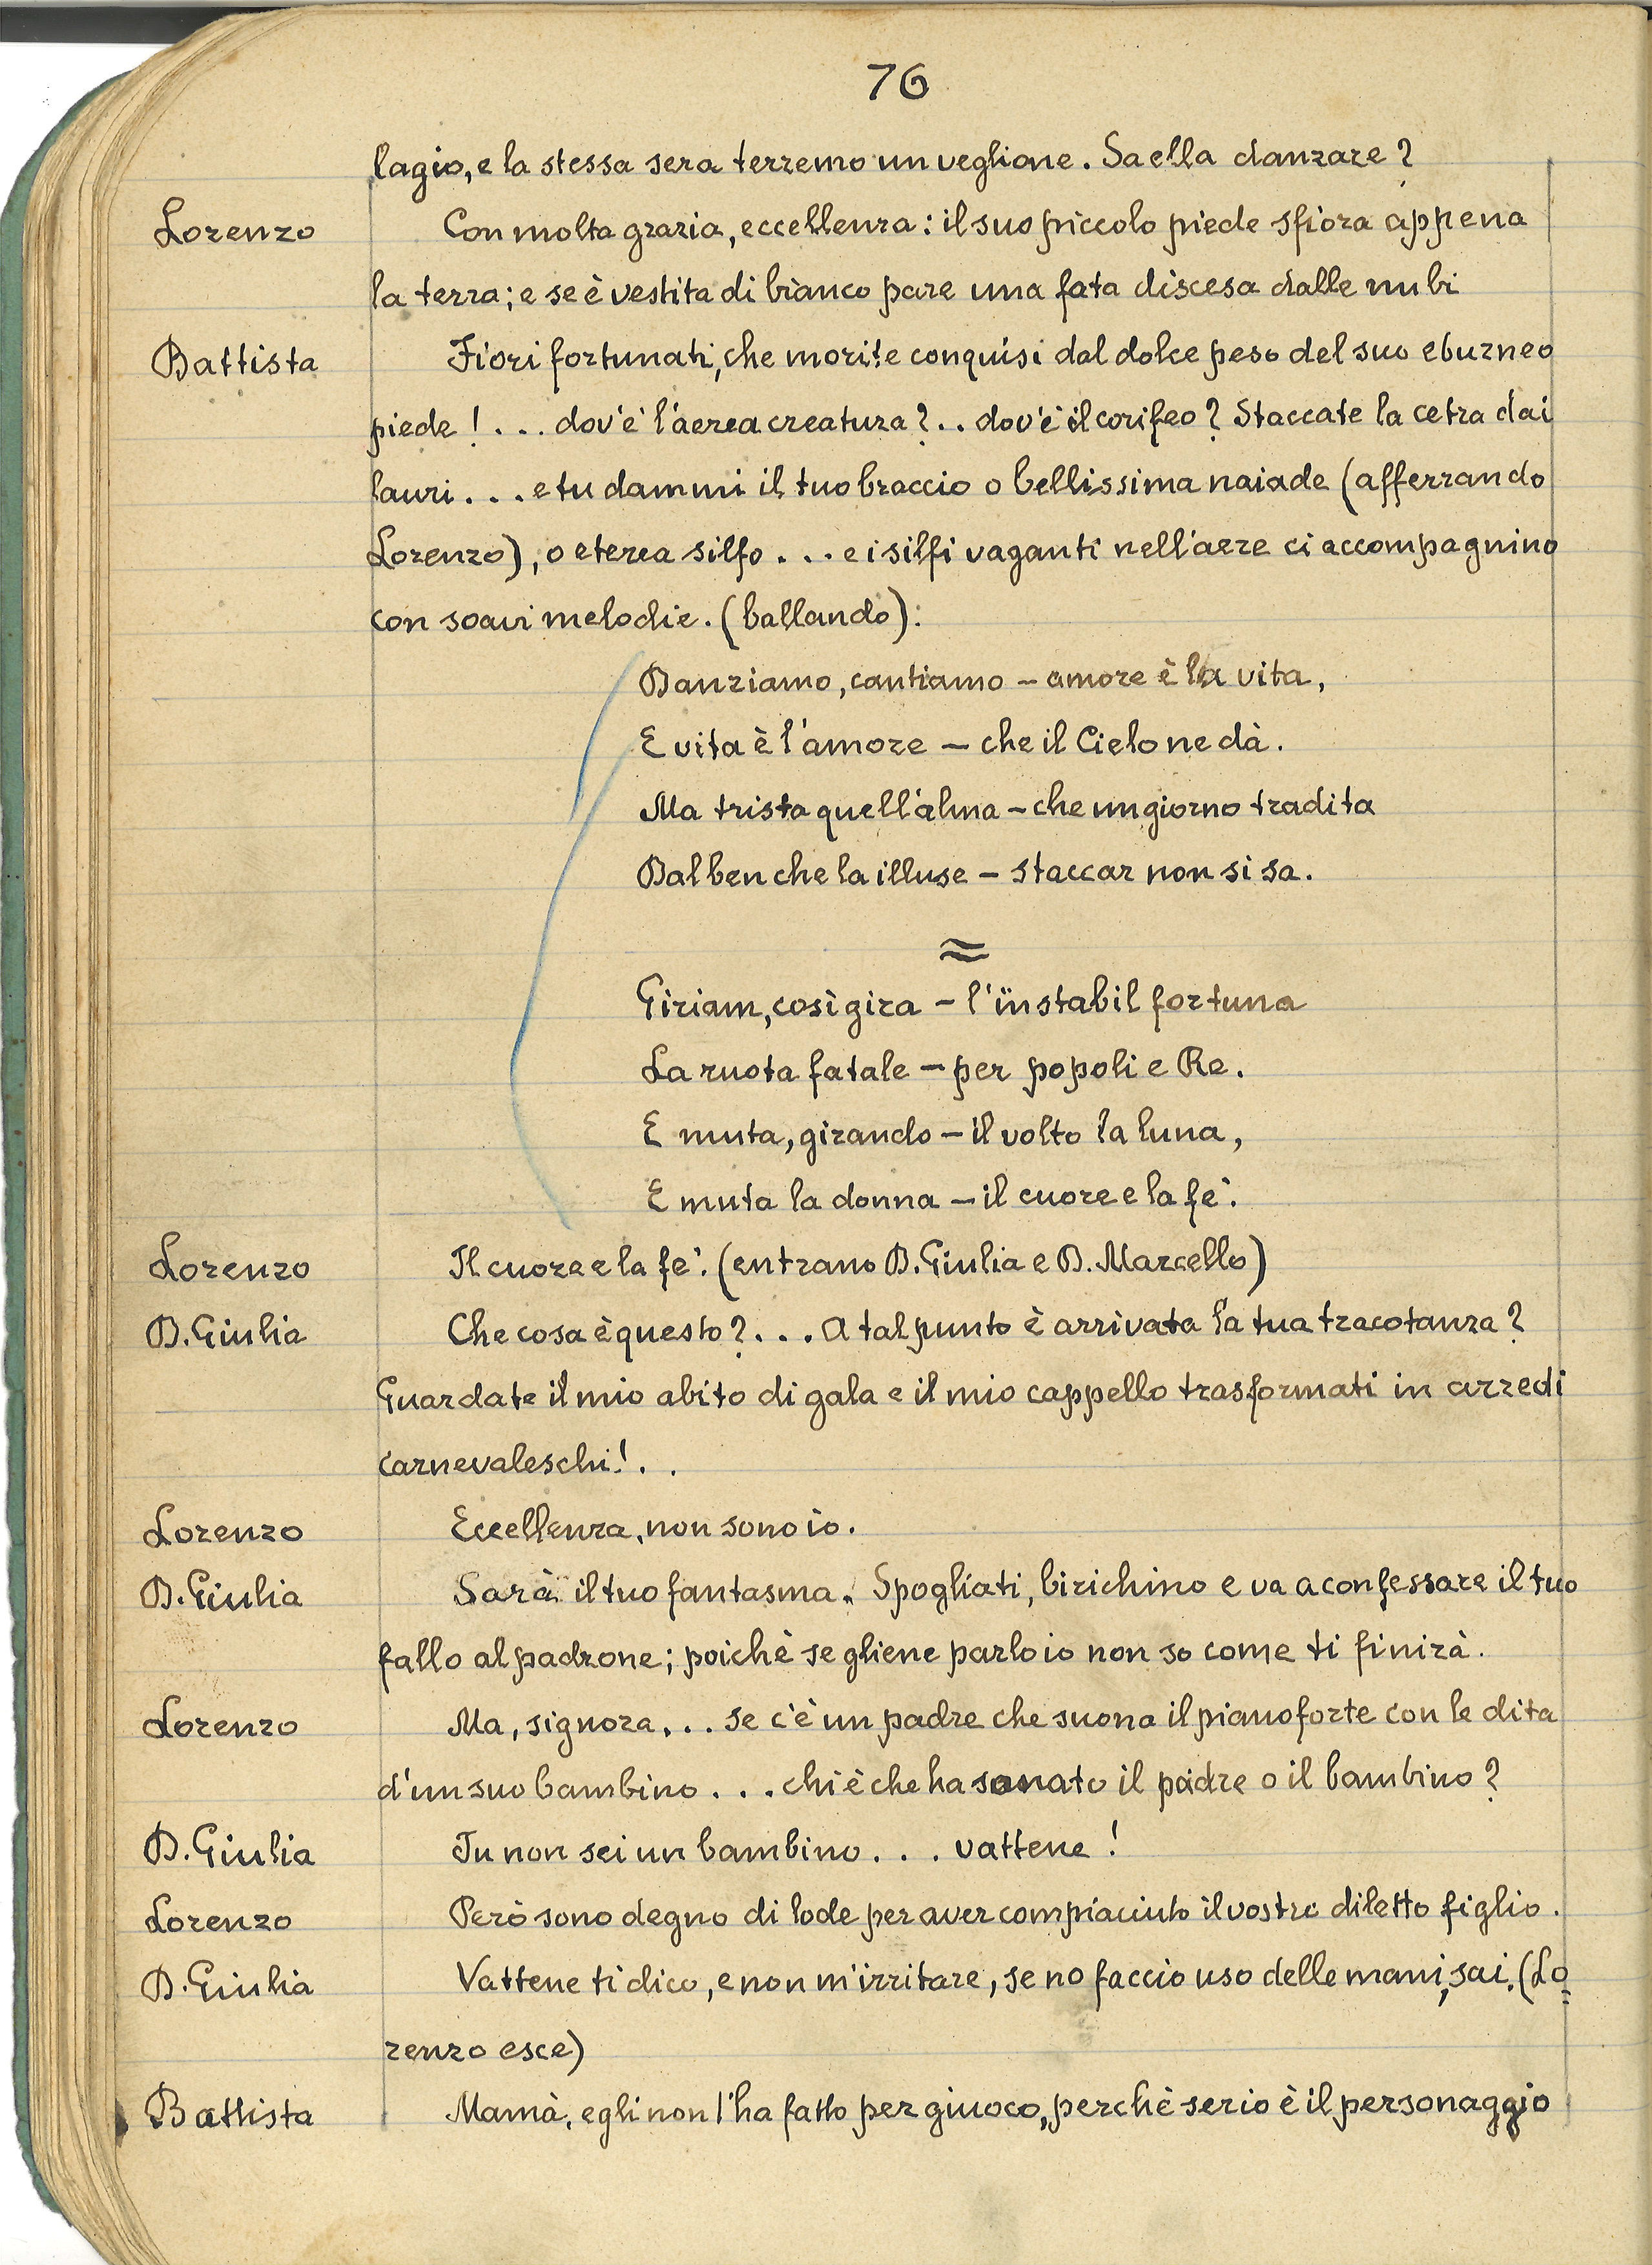 76
lagio, e la stessa sera terremo un veglione. Sa ella danzare?
Lorenzo Con molta grazia, eccellenza: il suo piccolo piede sfiora appena
la terra; e se è vestita di bianco pare una fata discesa dalle nubi
Battista Fiori fortunati, che morite conquisi dal dolce peso del suo eburneo
piede! . . . dov'è l'aerea creatura? . . dov'è il corifeo? Staccate la cetra dai
lauri . . . e tu dammi il tuo braccio o bellissima naiade (afferrando
Lorenzo), o eterea silfo . . . e i silfi vaganti nell'aere ci accompagnino
con soavi melodie. (ballando):
Danziamo, cantiamo – amore è la vita,
E vita è l'amore – che il Cielo ne dà.
Ma trista quell'alma – che un giorno tradita
Dal ben che la illuse – staccar non si sa.
≈
Giriam, così gira – l'instabil fortuna
La ruota fatale – per popoli e Re.
E muta, girando – il volto la luna,
E muta la donna – il cuore e la fe'.
Lorenzo Il cuore e la fe'. (entrano D. Giulia e D. Marcello)
D. Giulia Che cosa è questo? . . . A tal punto è arrivata la tua tracotanza?
Guardate il mio abito di gala e il mio cappello trasformati in arredi
carnevaleschi! . .
Lorenzo Eccellenza, non sono io.
D. Giulia Sarà il tuo fantasma. Spogliati, birichino e va a confessare il tuo
fallo al padrone; poichè se gliene parlo io non so come ti finirà.
Lorenzo Ma, signora . . . se c'è un padre che suona il pianoforte con le dita
d'un suo bambino . . . chi è che ha sonato il padre o il bambino?
D. Giulia Tu non sei un bambino . . . vattene!
Lorenzo Però sono degno di lode per aver compiaciuto il vostro diletto figlio.
D. Giulia Vattene ti dico, e non m'irritare, se no faccio uso delle mani, sai. (Lo=
renzo esce)
Battista Mamà, egli non l'ha fatto per giuoco, perchè serio è il personaggio